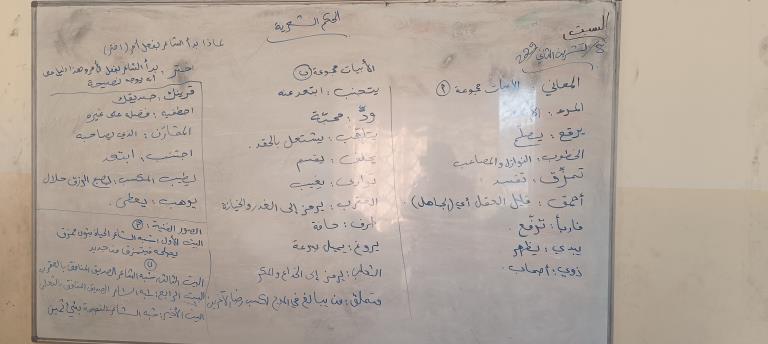 السبت
5 تشرين الثاني 2022
الحكم الشعرية
المعاني: الأبيات مجموعة (أ)
المرء:
يرقع: يصلح
الخطوب: النوازل والمصاعب
تمزق: تفسد
أحمق: قليل العقل أي (الجاهل).
فاربأ: ترفع.
يبدي: يظهر
ذوي: أصحاب.
الأبيات مجموعة (ب)
يتجنب: ابتعد عنه
ود: محبة
يتلهب: يشتعل بالحقد.
يحلف: يقسم
توارى: يغيب
العقرب: يرمز إلى الغدر والخيانة
طرف: حافة
يروغ: يميل بسرعة
الثعلب: يرمز إلى الخداع والمكر
متملق: من يبالغ في المدح لكسب رضا الآخرين
لماذا بدأ الشاعر بفعل أمر (اختر)
اختر: بدأ الشاعر بفعل الأمر وهذا
أنه يوجه نصيحة
قرينك: صديقك
اصطفيه: فضله على غيره
المقارن: الذي يصاحبه
اجتنب: ابتعد
ليطيب المكسب: ليصبح الرزق حلال
يوهب: يعطى.
الصور الفنية: (أ)
البيت الأول: شبه الشاعر الحياة بثوب ممزق
يصلحه فيتمزق من جديد
(ب)
البيت الثالث: شبه الشاعر الصديق المنافق بالعقرب
البيت الرابع: شبه الشاعر الصديق المنافق بالثعلب
البيت الأخير: شبه الشاعر النصيحة بشيء ثمين